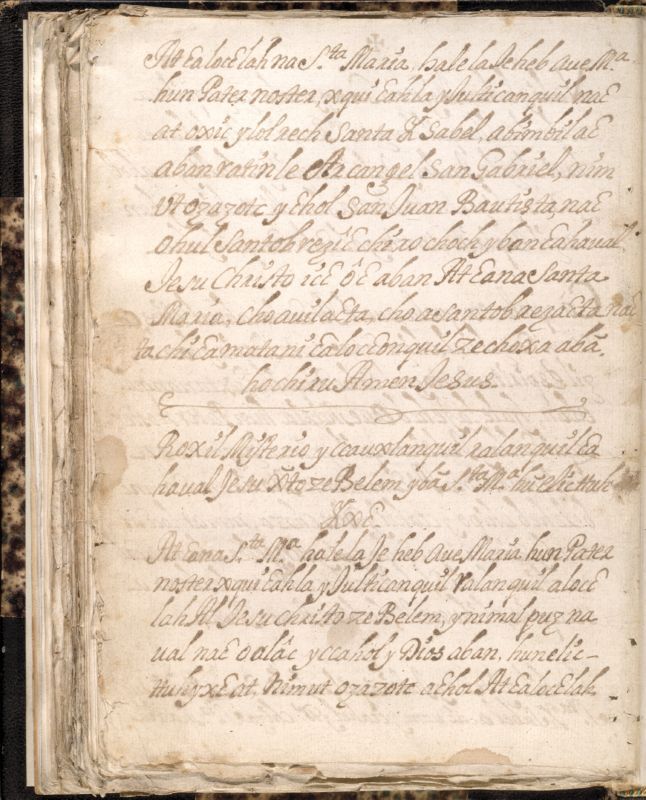 At Ɛalocɛlah na S.ta Maria, hale la Jeheb Aue M.a
hun Pater noster, xqui Ɛahla y Julticanquil naƐ
at oxic ylol rech Santa Ysabel, abimbil aƐ
aban ratin le Arcangel San Gabriel, nim
vtozazotc y Ɛhol San Juan Bautista, naƐ
ohul Santobrezic chi ro choch y ban Ɛahaual
Jesu Christo icƐ óƐ aban At Ɛana Santa
Maria, cho auilaƐta, cho a santobrezaƐta naƐ
ta chi Ɛamatani ƐaloƐonquil ze choxa abā
ho chi ru Amen Jesus.
Roxil Mysterio yccauxlanquil ralanquil Ɛa
haual Jesu Xpto ze Belem y bā S.ta M.a hū Elic ttuh
YxƐ
At Ɛana S.ta M.a hale la Je heb Aue Maria hun Pater
noster xqui Ɛahla y Julticanquil Ralanquil alocƐ
lah Al Jesu Christo ze Belem, y nimal puz na
ual naƐ o alác yccahol y Dios aban, hun elic-
ttuh yxƐ at, Nimut ozazotc aƐhol At ƐalocƐlah